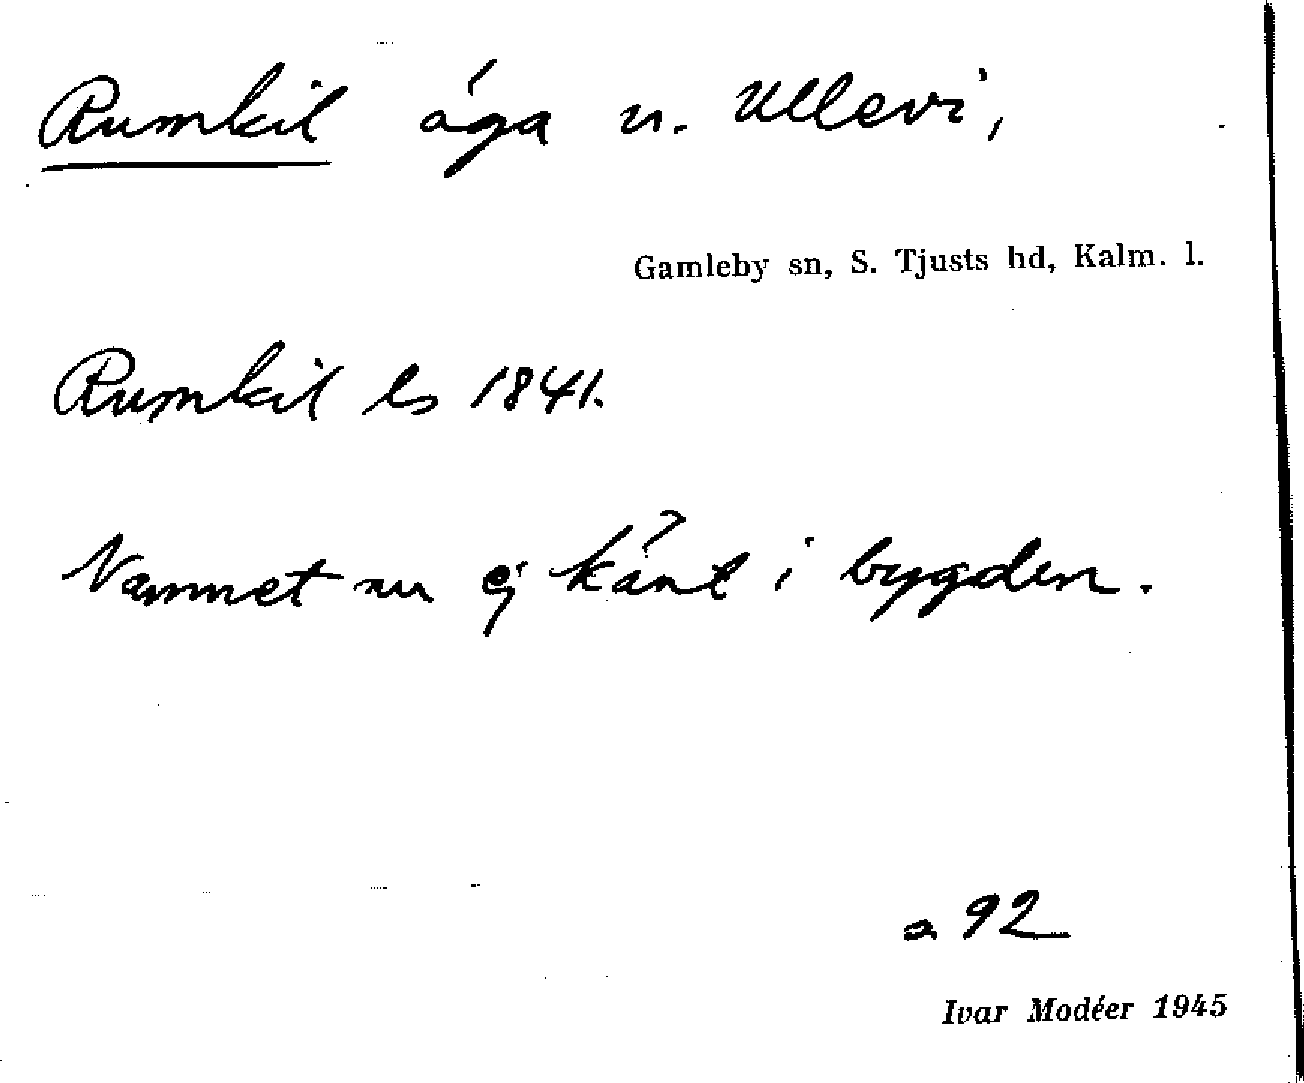 Rumkil äga u. Ullevi,
Gamleby sn, S. Tjusts hd, Kalm. l.
Rumkil ls 1841.
Namnet nu ej känt i bygden.
a 92
Ivar Modéer 1945